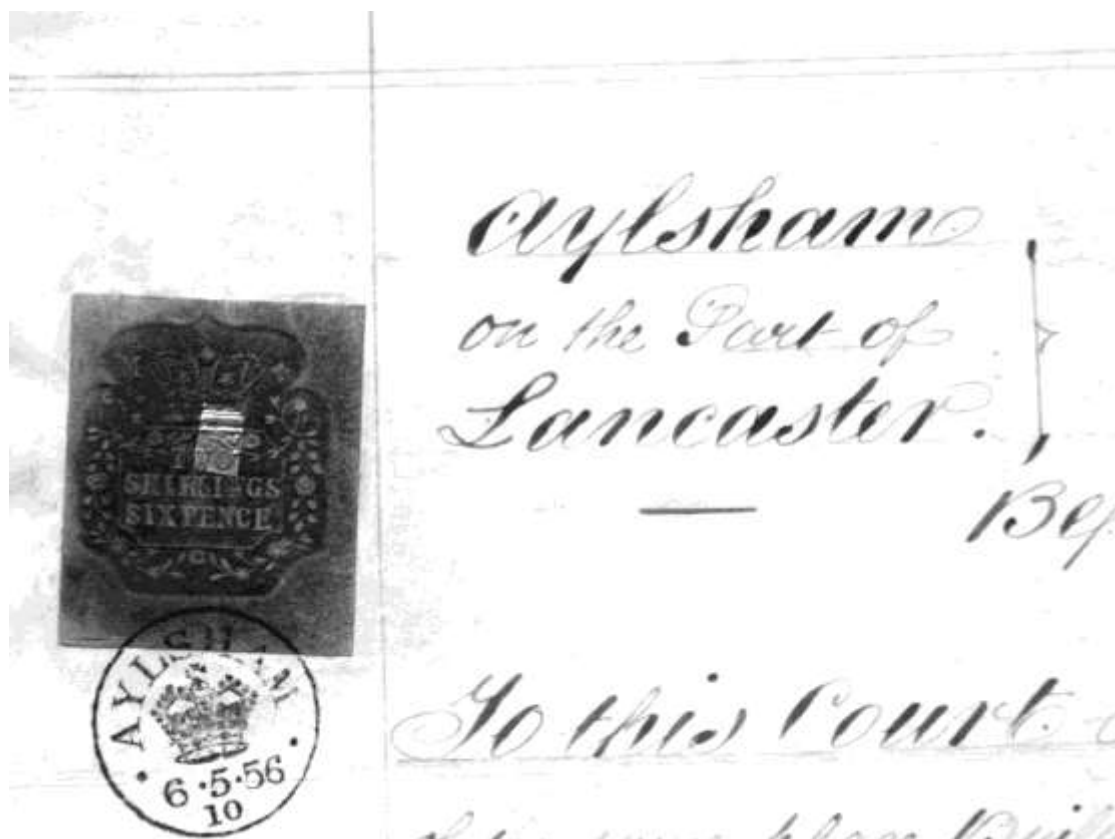 Aylsham
on the Part of
Lancaster.
TWO
SHILLINGS
SIXPENCE
AYLSHAM
6·5·56
10
To this Court
of the same place